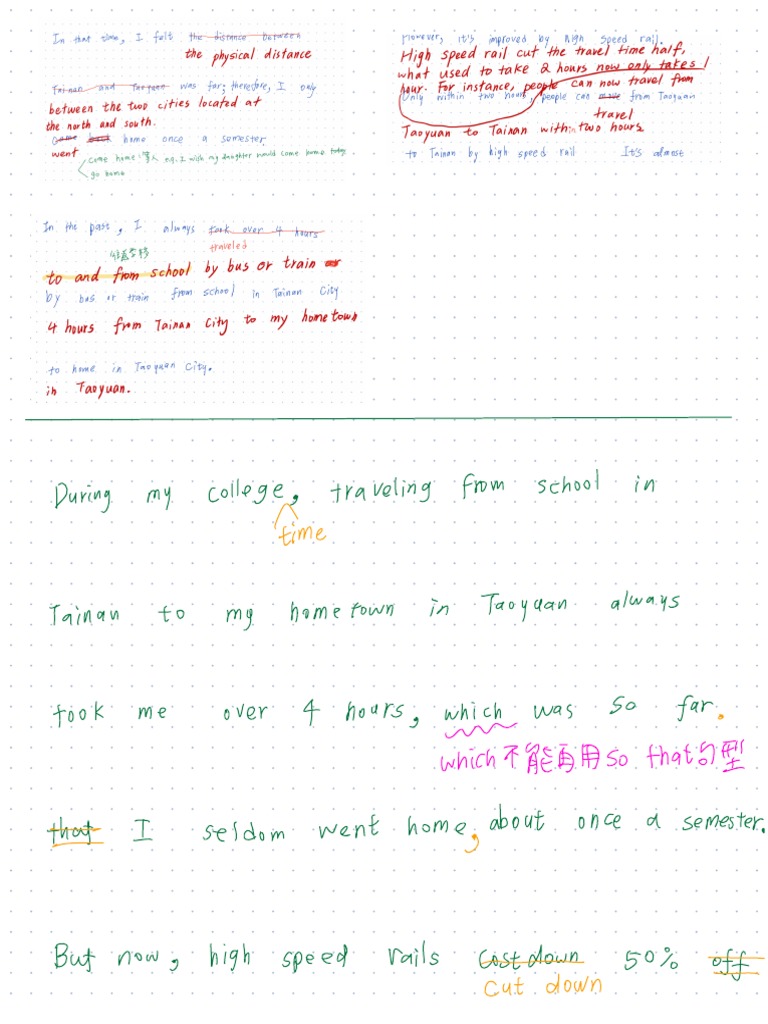 In that time, I felt the distance between
the physical distance
Tainan and Taoyuan was far; therefore, I only
between the two cities located at
the north and south.
came back home once a semester.
went
come home: 家人 e.g. I wish my daughter would come home today
go home
However, it's improved by high speed rail.
High speed rail cut the travel time half,
what used to take 2 hours now only takes 1
hour. For instance, people can now travel from
Only within two hours, people can move from Taoyuan
travel
Taoyuan to Tainan within two hours
to Tainan by high speed rail It's almost
In the past, I always took over 4 hours
traveled
to and from school by bus or train or
by bus or train from school in Tainan City
4 hours from Tainan City to my hometown
to home in Taoyuan City.
in Taoyuan.
During my college, traveling from school in
time
Tainan to my hometown in Taoyuan always
took me over 4 hours, which was so far.
which不能再用so that句型
that I seldom went home, about once a semester.
But now, high speed rails cost down 50% off
cut down